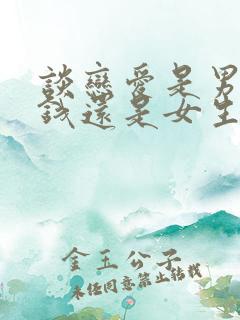 談戀愛是男
錢還是女生
金玉公子
未經同意禁止轉載